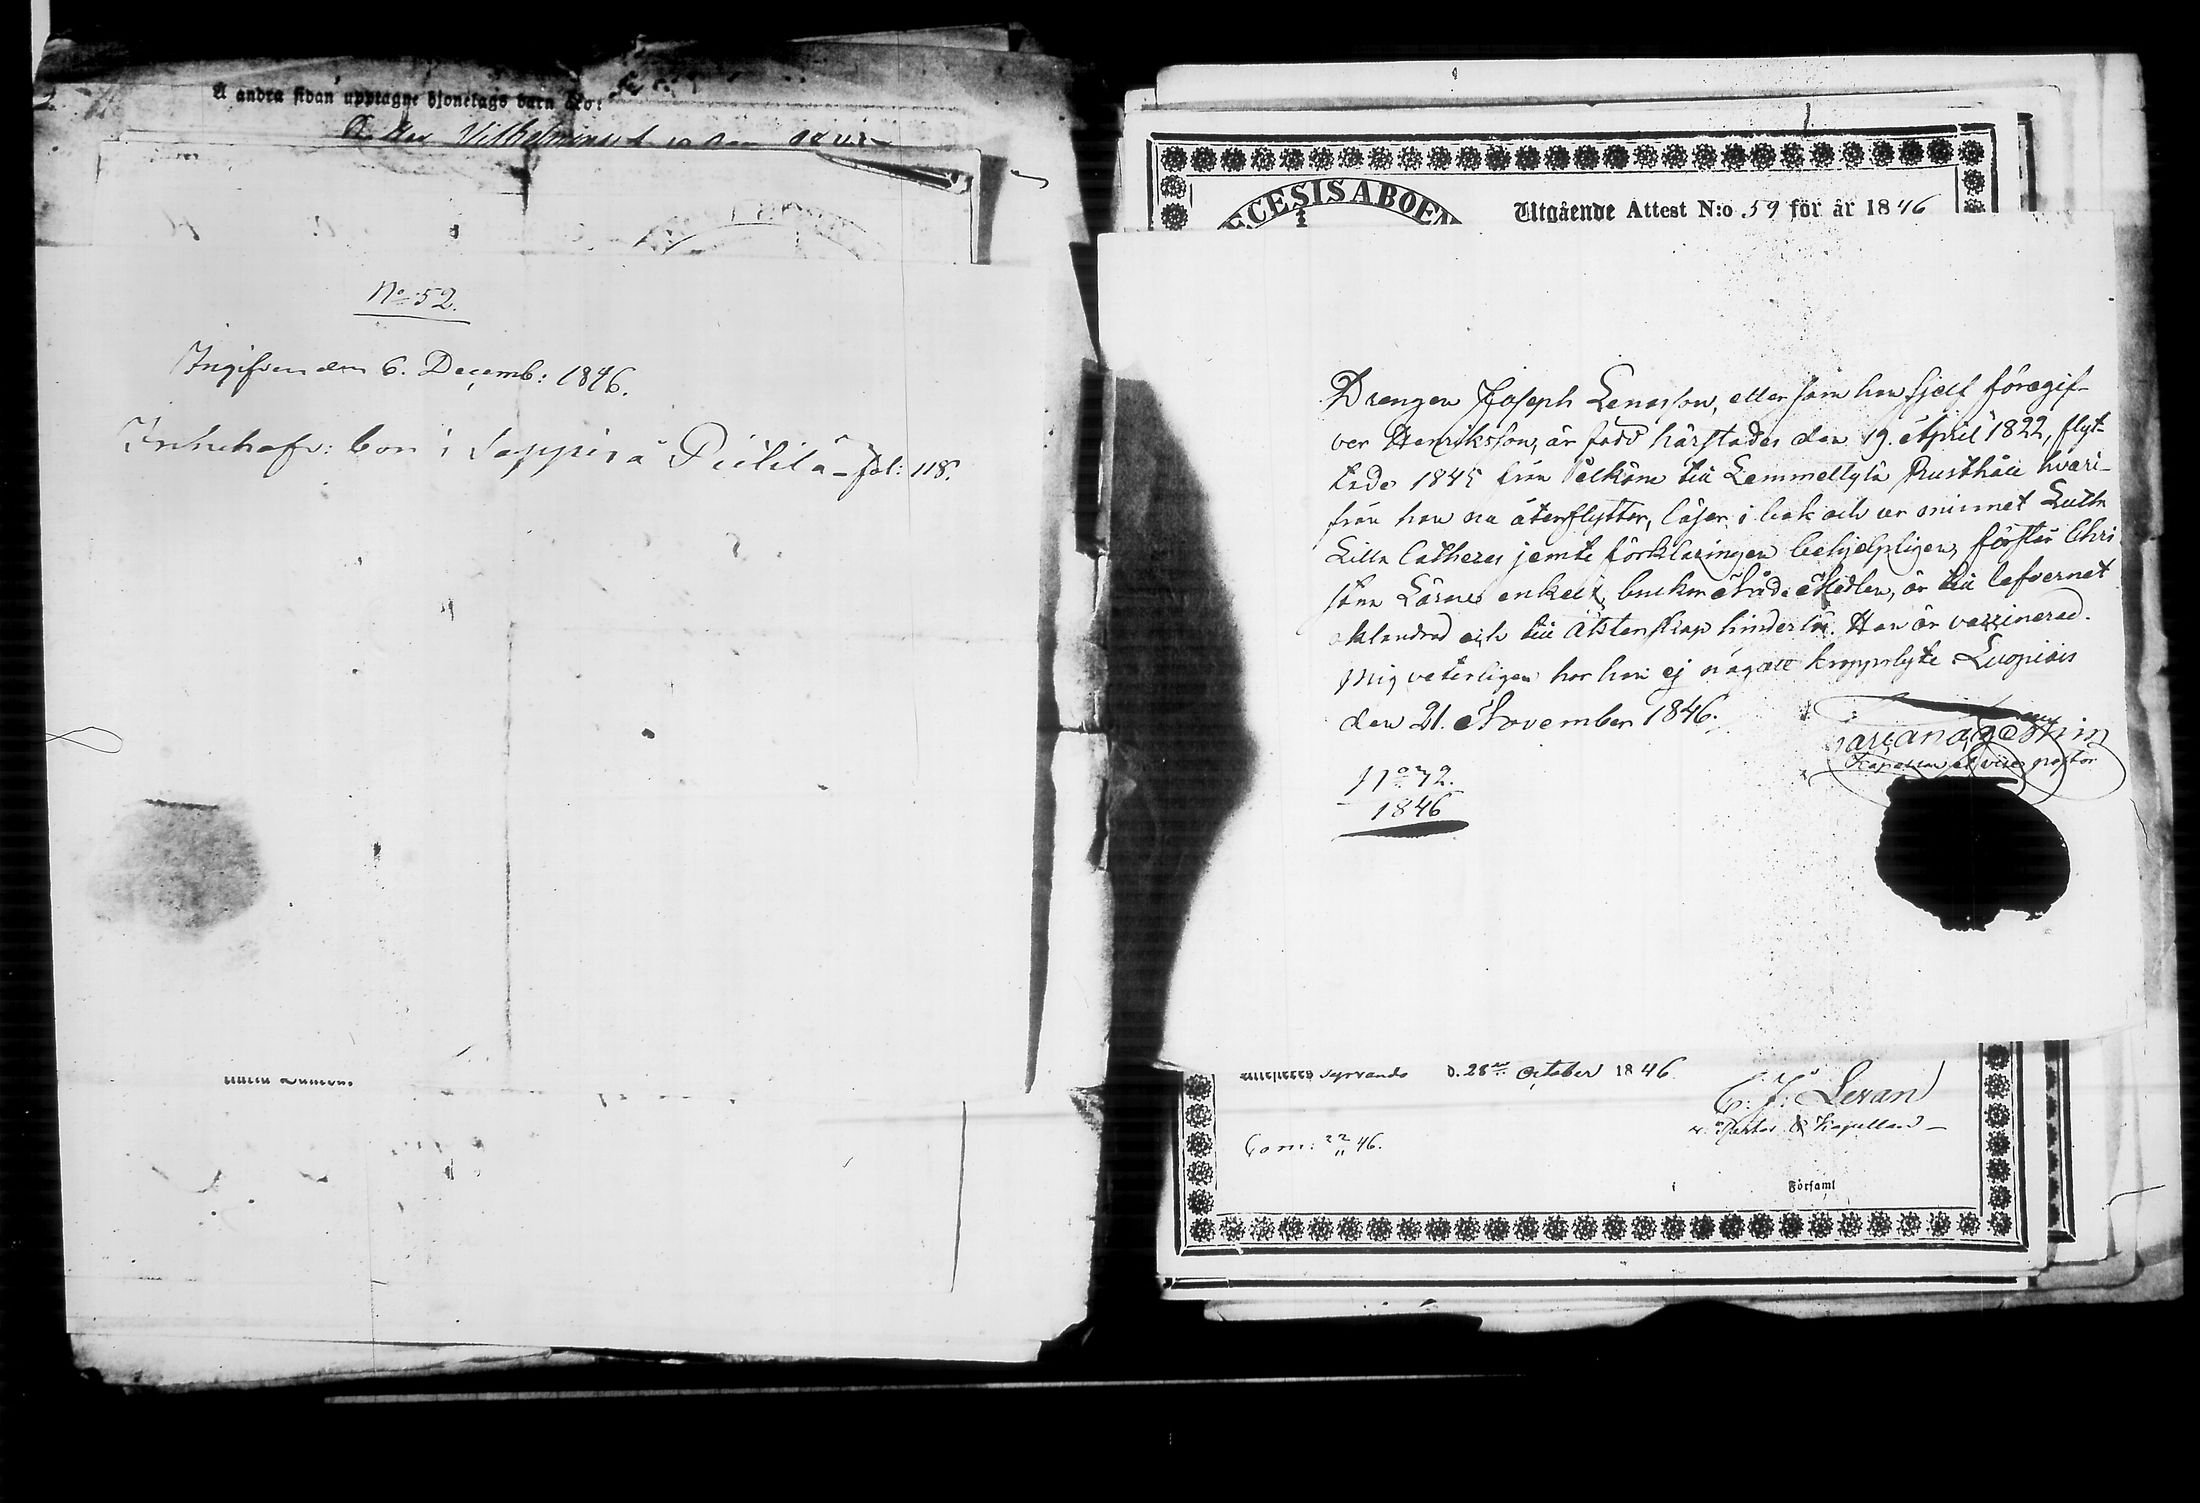 Å andra sidan upptagne hjonelags barn äro:
Vilhelmina
No 52.
Ingifven den 6. Decemb: 1846.
Inhehafv: bor i Sappi å Pietilä – fol: 118.
ECESIS ABOEN
Utgående Attest N:o 59 för år 1846
Drengen Joseph Lenasson, eller som han sjelf föregif-
ver Henriksson, är född härstädes den 19. April 1822, flyt-
tade 1845 från Pelkäne till Lemmettylä Rusthåll hvari-
från han nu återflyttar, läser i bok och ur minnet Luth
Lilla Catheces jemte förklaringen behjelpligen, förstår Chri
stna Läran enkelt, brukar Nåde Medlen, är till lefvernet
oklandrad och till Äktenskap hinderlös. Han är vaccinerad.
Mig veterligen har han ej något kroppslyte. Luopiois
den 21. November 1846.
Kapellan vice pastor
No 72.
1846
D. 28de October 1846
C. J. Levan
v. Pastor & Kapellan –
Com: 22/11 46.
Förfaml